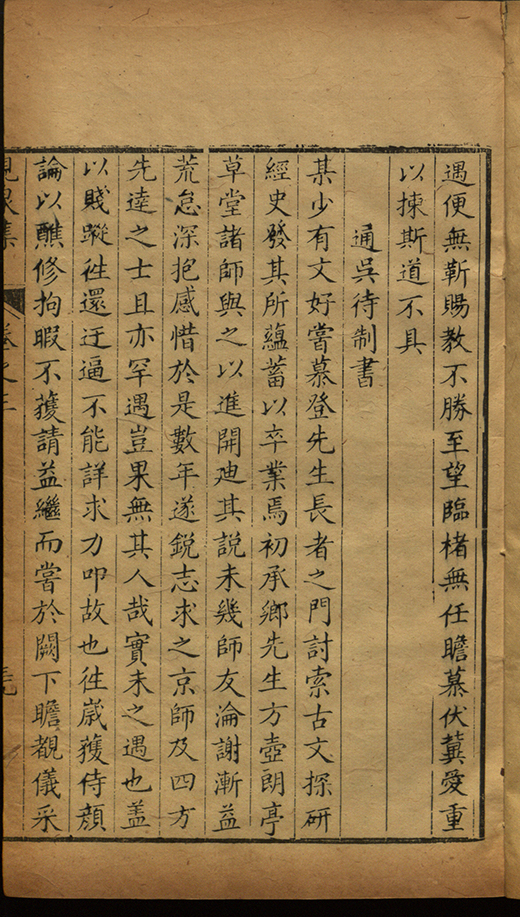 遇便無靳賜教不勝至望臨楮無任瞻慕伏冀愛重
以揀斯道不具
通吳待制書
某少有文好嘗慕登先生長者之門討索古文探研
經史發其所蘊蓄以卒業焉初承鄉先生方壺朗亭
草堂諸師與之以進開廸其說未幾師友淪謝漸益
荒怠深抱感惜於是數年遂鋭志求之京師及四方
先達之士且亦罕遇豈果無其人哉實未之遇也盖
以賤蹤徃還迂逼不能詳求力叩故也徃嵗獲侍顔
論以醮修拘暇不獲請益繼而嘗於闕下瞻覩儀采
峴泉集
卷之三